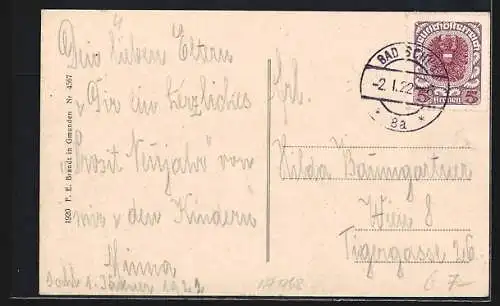 Lieben Eltern
Dir ein herzliches
"Prosit Neujahr" von
mir u den Kindern
Minna
1. Jänner 1922
1920 F. E. Brandt in Gmunden Nr 4567
Frl.
Hilda Baumgartner
Wien 8
Tigergasse 26.
Deutschösterreich
5 Kronen 5
BAD
-2.I.22
* 8a *